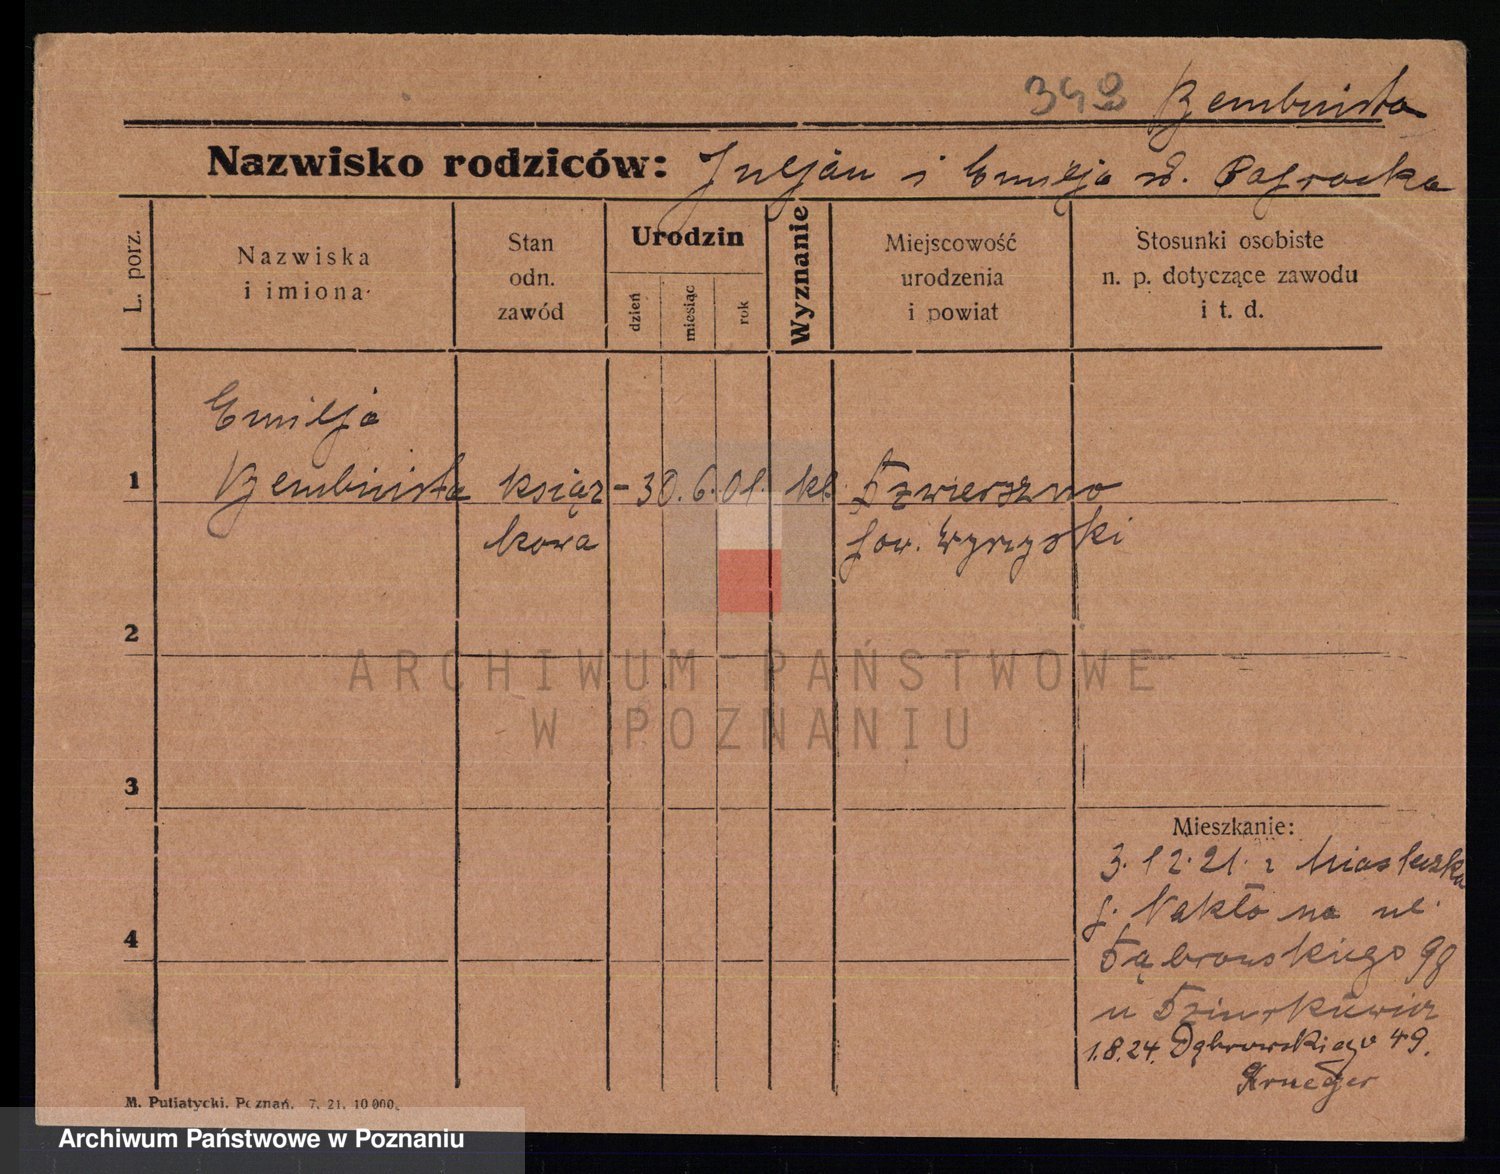 349
Nazwisko rodziców: Juljan i Emilja
L. porz.
Nazwiska
i imiona
Stan
odn.
zawód
Urodzin
dzień
miesiąc
rok
Wyznanie
Miejscowość
urodzenia
i powiat
Stosunki osobiste
n. p. dotyczące zawodu
i t. d.
Emilja
1
książ - 30. 6. 01. kt. Dzwierszno
kowa
pow. Wyrzyski
2
3
4
Mieszkanie:
3. 12. 21. z Miasteczka
p. Nakło na ul.
Dąbrowskiego 98
u
1.8.24. Dąbrowskiego 49.
Krueger
M. Putiatycki. Poznań. 7. 21. 10 000.
ARCHIWUM PAŃSTWOWE
W POZNANIU
Archiwum Państwowe w Poznaniu